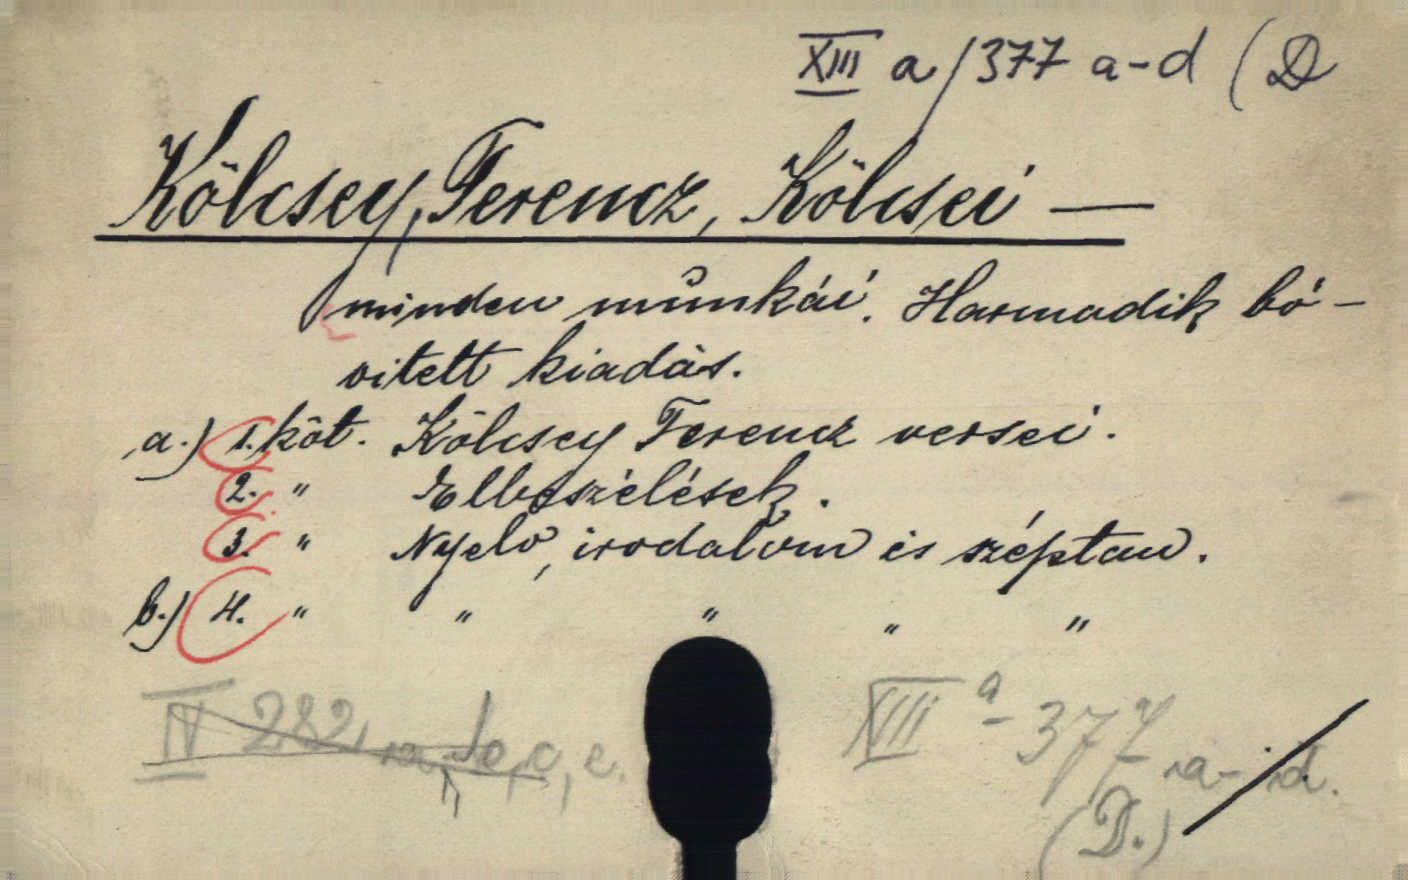 XIII a/377 a-d (D
Kölcsey, Ferencz, Kölcsei —
minden munkái. Harmadik bő-
vitett kiadás.
a.) 1. köt. Kölcsey Ferencz versei.
2. " Elbeszélések.
3. " Nyelv, irodalom és széptan.
b.) 4. " " " " "
IV 282, a, b, c, e. XIII a - 377 a-d.
(D.)